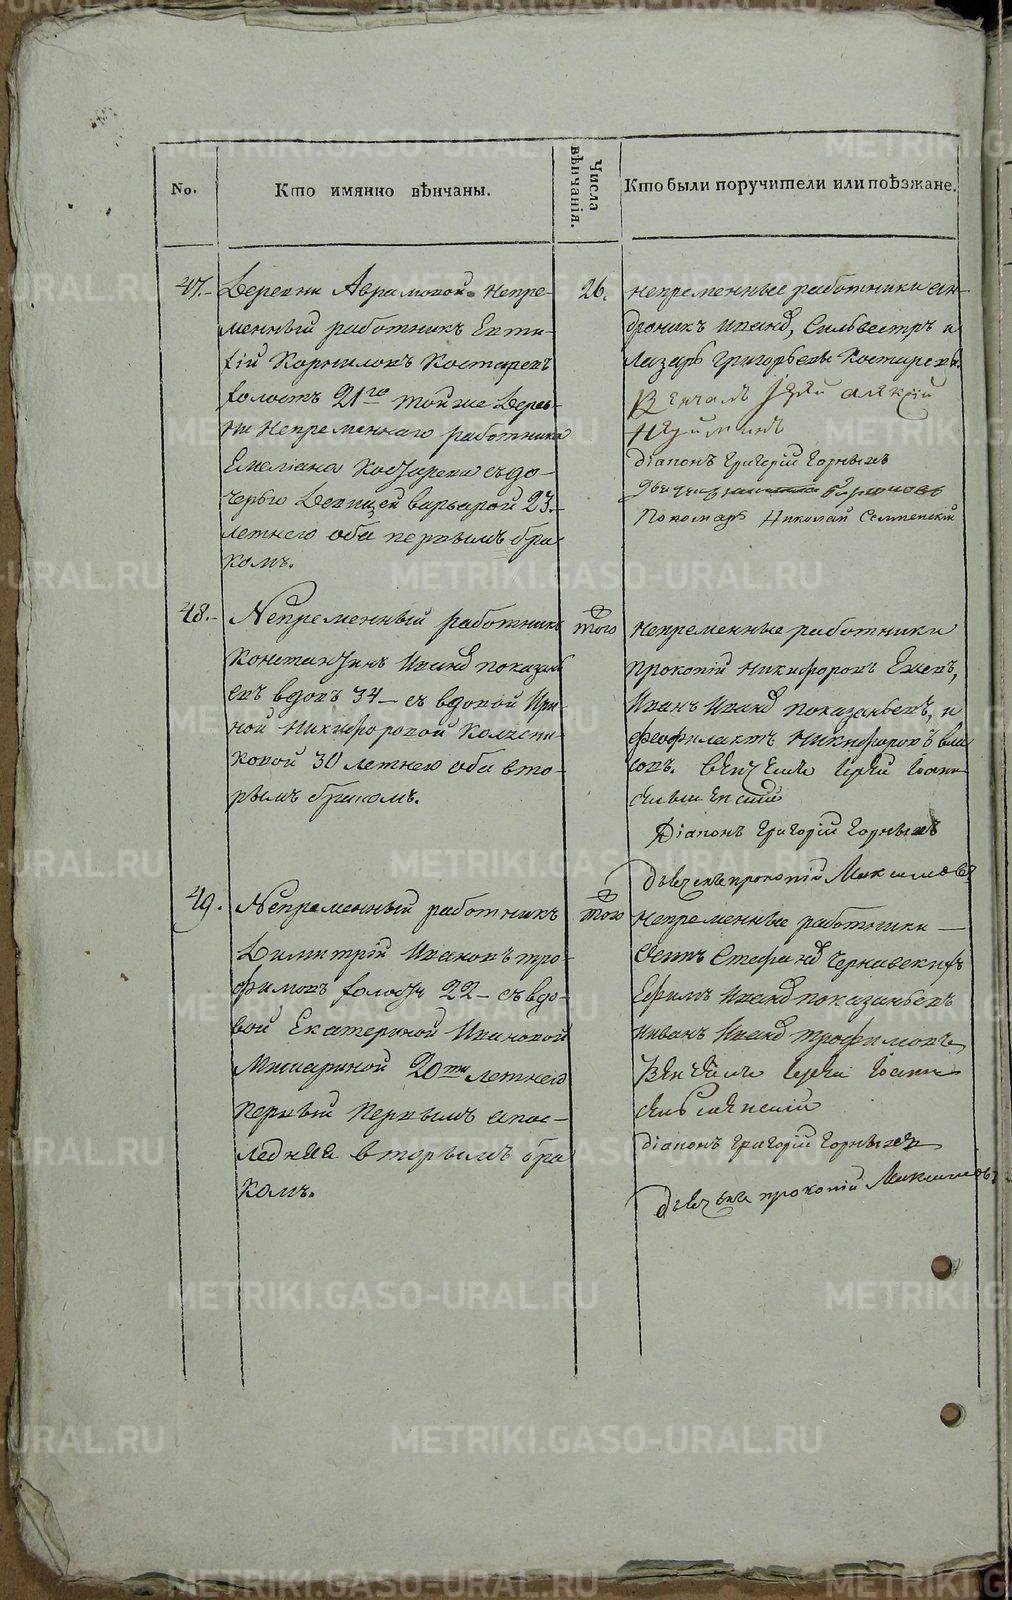 No.
Кто имянно вѣнчаны.
Числа вѣнчанія.
Кто были поручители или поѣзжане.
47.
Деревни Аврамовой непре-
менный работникъ Евти-
хій Корниловъ Костаревъ
холостъ 21го тойже Дерев-
ни Непременнаго работника
Емеліана Костарева съ до-
черью Девицей варварой 23.
летнего оба первымъ бра
комъ.
26.
непременные работники ан-
дроникъ Иванъ, Сильвестръ и
Лазарь григорьевы Костаревы.
Венчалъ Іерей алексій
діаконъ Григорій Горныхъ
Пономарь Николай
48.
Непременный работникъ
Константинъ Иванъ показань
евъ вдовъ 34 съ вдовой Ири-
ной Никифоровой Колесни-
ковой 30 летнею оба вто-
рымъ бракомъ.
того
непременные работники
прокопій Никифоровъ Ежевъ,
Иванъ Иванъ показаньевъ, и
феофилактъ Никифоровъ вла
совъ. венчалъ Іерей Іоаннъ
Діаконъ Григорій Горныхъ
дьячекъ прокопій Максимовъ
49.
Непременный работникъ
Димитрій Ивановъ тро-
фимовъ холостъ 22 съ вдо-
вой Екатериной Ивановой
Мишариной 20ти летнею
первый первымъ а пос-
ледняя вторымъ бра
комъ.
того
непременные работники
Стефанъ
Ефимъ Иванъ показаньевъ
Иванъ Иванъ трофимовъ
Венчалъ Іерей Іоаннъ
діаконъ Григорій Горныхъ
дьячекъ прокопій Максимовъ
METRIKI.GASO-URAL.RU